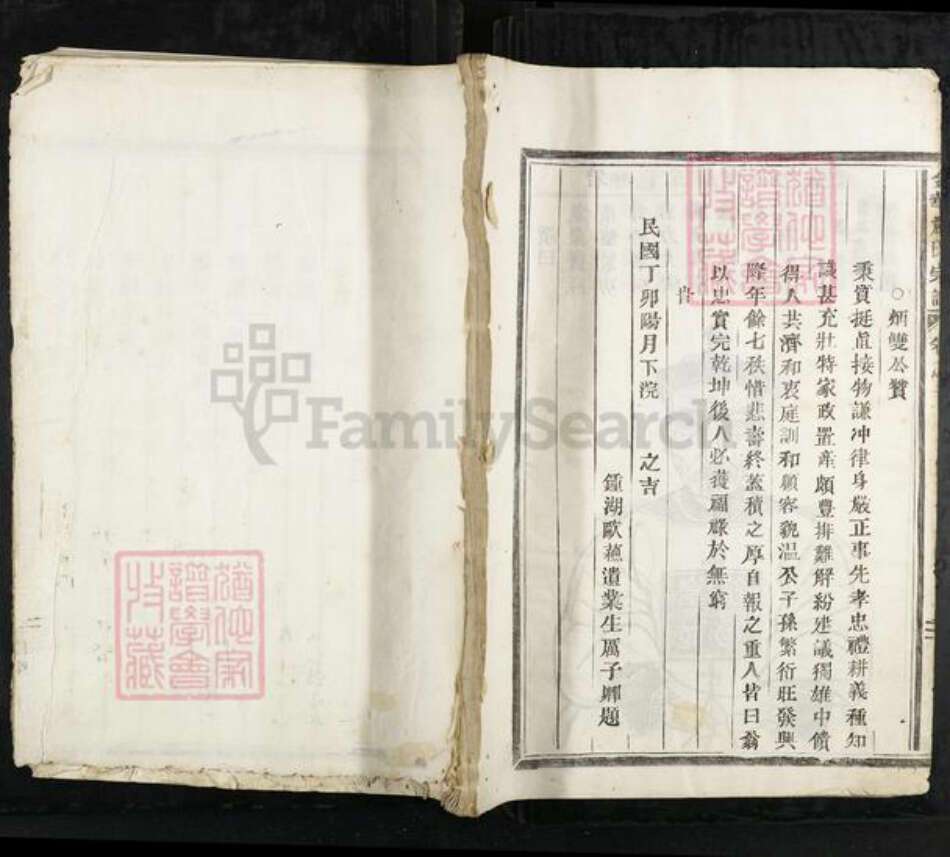 ○炳雙公贊
秉質挺眞接物謙冲律身嚴正事先孝忠禮耕義種知
識甚充壯特家政置產頗豐排難解紛建議獨雄中饋
得人共濟和衷庭訓和顏容貌溫公子孫繁衍旺發興
隆年餘七秩惜悲壽終蓋積之厚自報之重人皆曰翁
以忠實完乾坤後人必獲福祿於無窮
旹
民國丁卯陽月下浣 之吉
鍾湖歐 遺業生厲子 題
譜學會
收藏
FamilySearch
譜學會
收藏